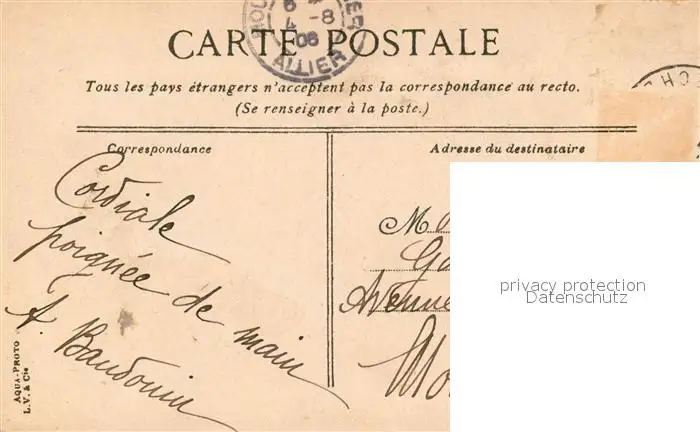 CARTE POSTALE
ALLIER
6
4 -8
06
Tous les pays étrangers n'acceptent pas la correspondance au recto.
(Se renseigner à la poste.)
Correspondance
Adresse du destinataire
Cordiale
poignée de main
A. Baudouin
Avenue
privacy protection
Datenschutz
AQUA-PHOTO
L.V. & Cie